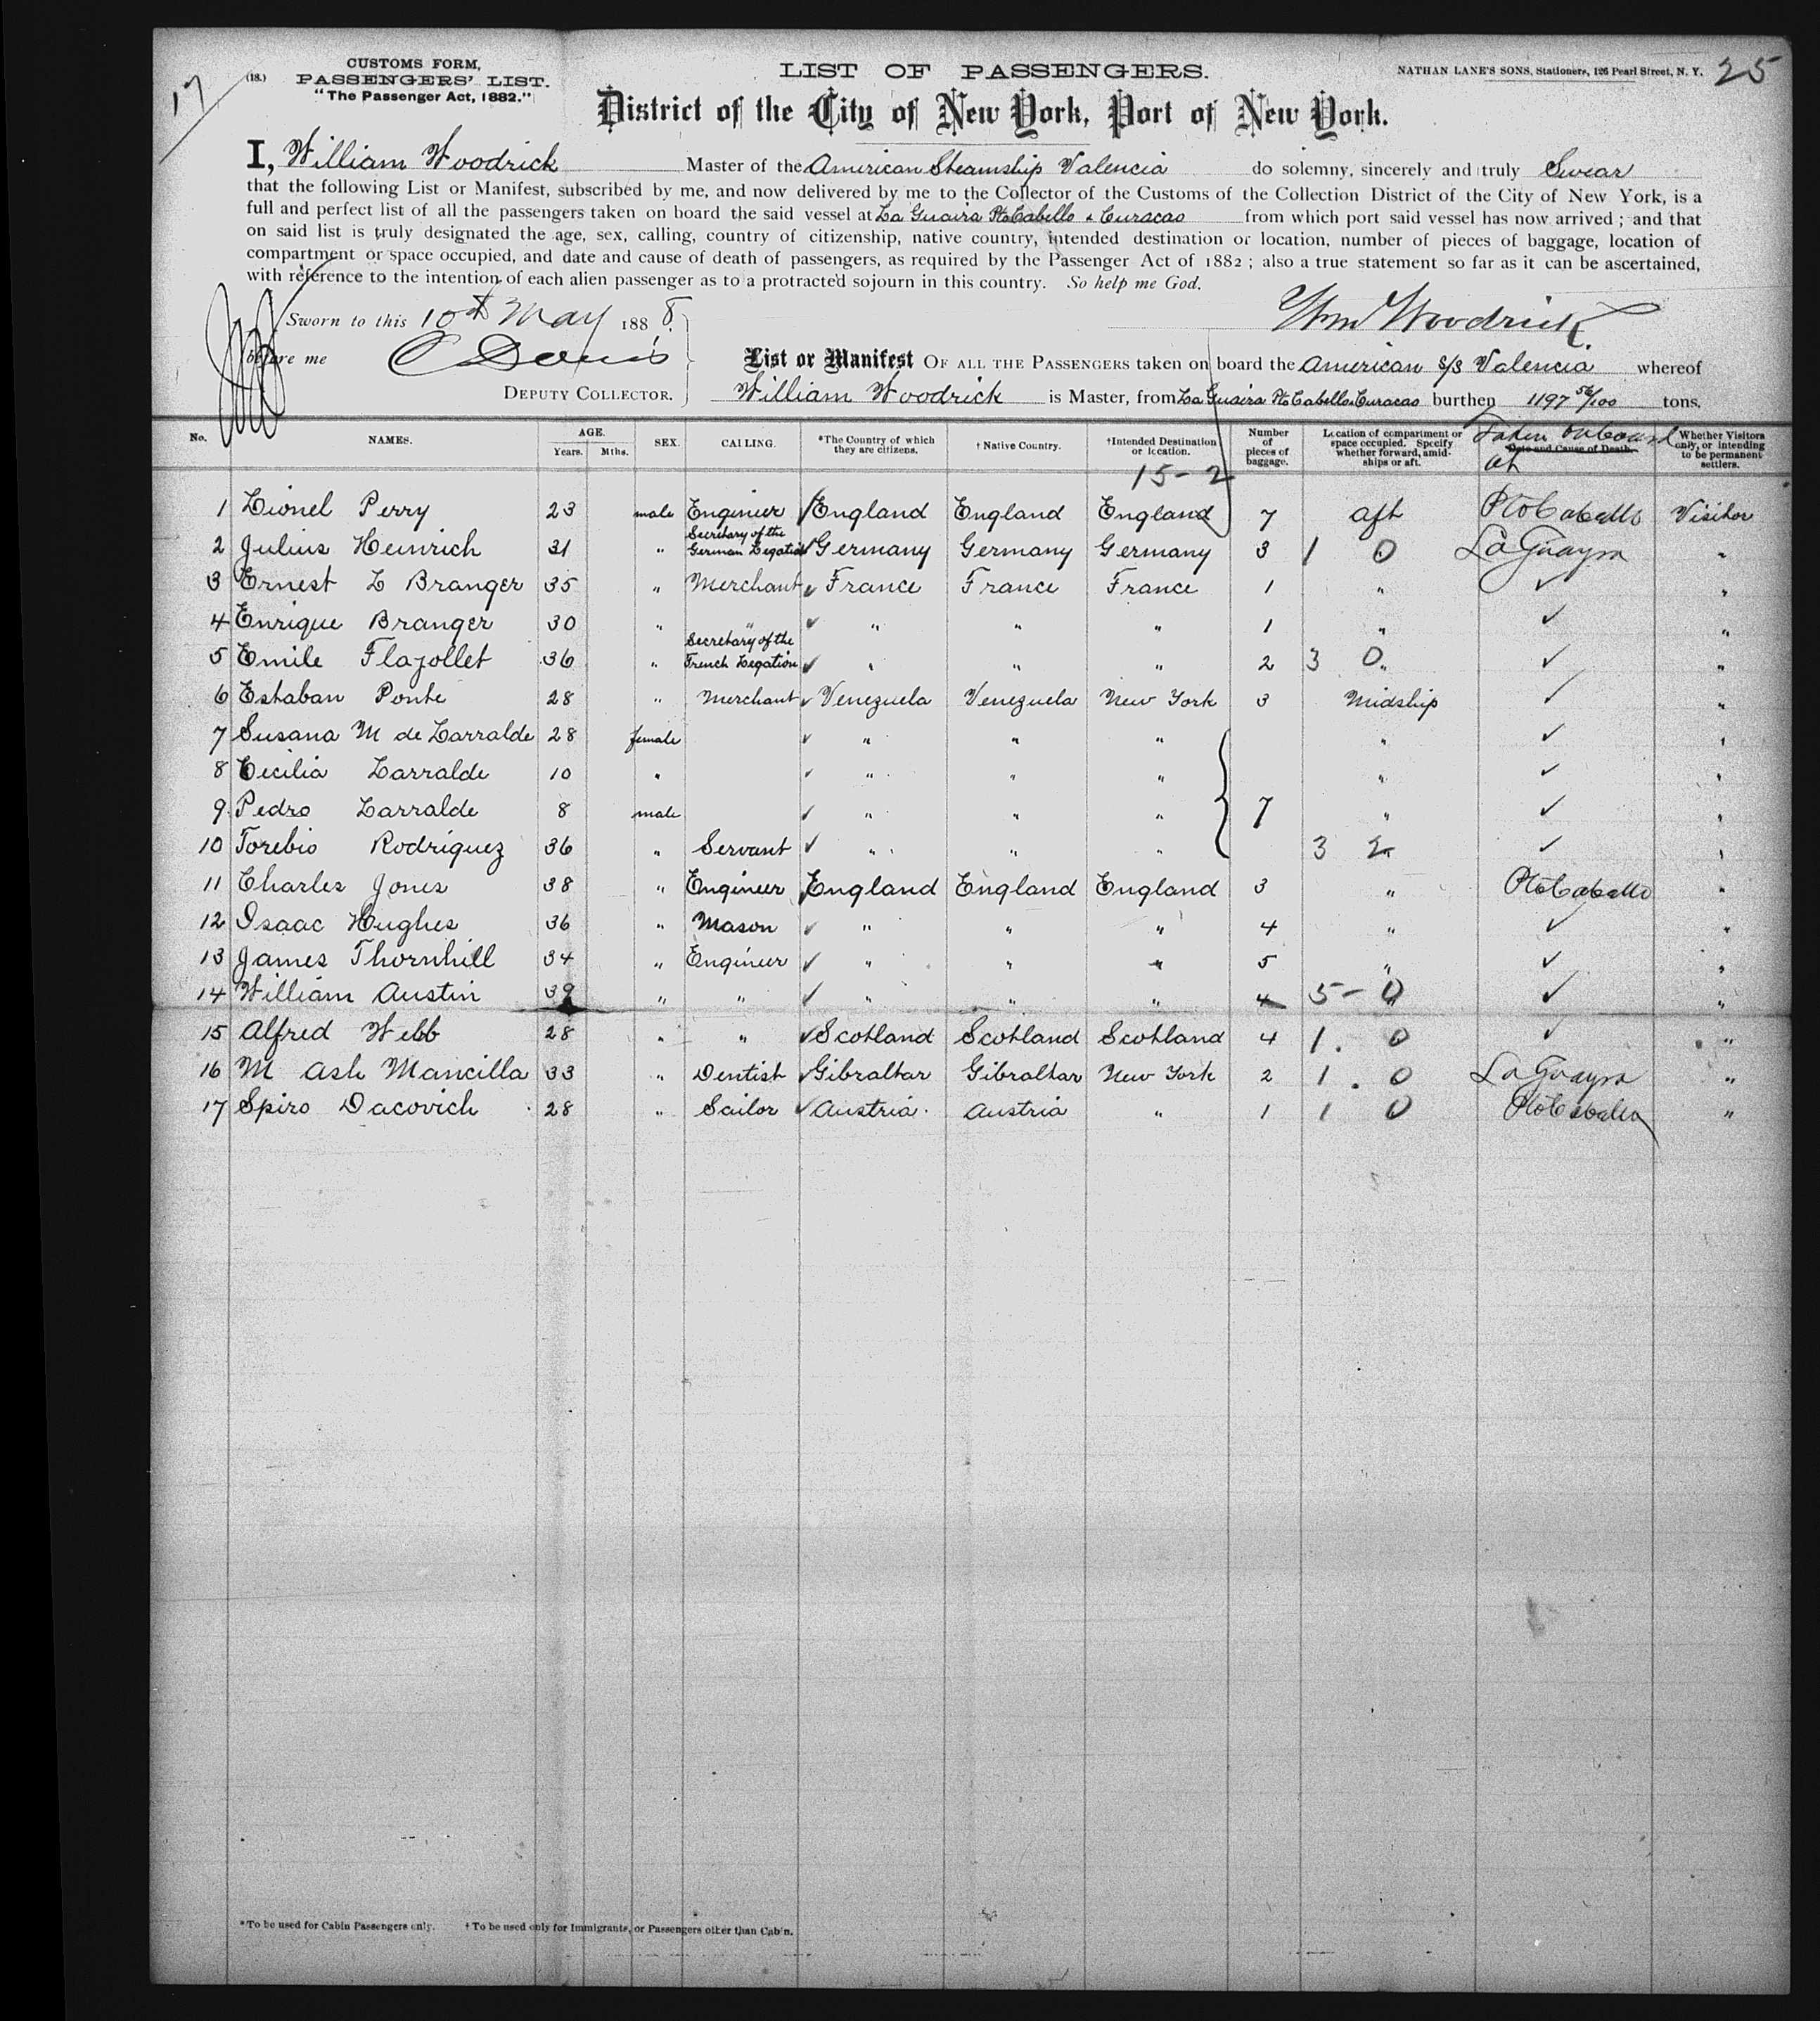 17
(18.)
CUSTOMS FORM,
PASSENGERS' LIST.
"The Passenger Act, 1882."
LIST OF PASSENGERS.
NATHAN LANE'S SONS, Stationers, 126 Pearl Street, N. Y.
25
District of the City of New York, Port of New York.
I, William Woodrick Master of the American Steamship Valencia do solemny, sincerely and truly Swear
that the following List or Manifest, subscribed by me, and now delivered by me to the Collector of the Customs of the Collection District of the City of New York, is a
full and perfect list of all the passengers taken on board the said vessel at La Guaira Pto Cabello & Curacao from which port said vessel has now arrived; and that
on said list is truly designated the age, sex, calling, country of citizenship, native country, intended destination or location, number of pieces of baggage, location of
compartment or space occupied, and date and cause of death of passengers, as required by the Passenger Act of 1882; also a true statement so far as it can be ascertained,
with reference to the intention of each alien passenger as to a protracted sojourn in this country. So help me God.
Sworn to this 10th May 1888.
Wm Woodrick
before me C Davis
DEPUTY COLLECTOR.
List or Manifest OF ALL THE PASSENGERS taken on board the American S/S Valencia whereof
William Woodrick is Master, from La Guaira Pto Cabello & Curacao burthen 1197 56/100 tons.
No. NAMES. AGE. Years. Mths. SEX. CALLING. *The Country of which they are citizens. † Native Country. †Intended Destination or location. Number of pieces of baggage. Location of compartment or space occupied. Specify whether forward, amidships or aft. Date and Cause of Death. Taken on board at Whether Visitors only, or intending to be permanent settlers.
15-2
1 Lionel Perry 23 male Engineer England England England 7 aft Pto Cabello Visitor
2 Julius Heinrich 31 " Secretary of the German Legation Germany Germany Germany 3 1 0 La Guayra "
3 Ernest L Branger 35 " Merchant France France France 1 " ✓ "
4 Enrique Branger 30 " " " " " 1 " ✓ "
5 Emile Flajollet 36 " Secretary of the French Legation " " " 2 3 0 " ✓ "
6 Estaban Ponte 28 " Merchant Venezuela Venezuela New York 3 Midship ✓ "
7 Susana M de Larralde 28 female " " " " ✓ "
8 Cecilia Larralde 10 " " " " " ✓ "
9 Pedro Larralde 8 male " " " 7 " ✓ "
10 Torebio Rodriguez 36 " Servant " " " 3 2 ✓ "
11 Charles Jones 38 " Engineer England England England 3 " Pto Cabello "
12 Isaac Hughes 36 " Mason " " " 4 " ✓ "
13 James Thornhill 34 " Engineer " " " 5 " ✓ "
14 William Austin 39 " " " " " 4 5-0 " ✓ "
15 Alfred Webb 28 " " Scotland Scotland Scotland 4 1. 0 ✓ "
16 M Ash Mancilla 33 " Dentist Gibraltar Gibraltar New York 2 1. 0 La Guayra "
17 Spiro Dacovich 28 " Sailor Austria Austria " 1 1 0 Pto Cabello "
*To be used for Cabin Passengers only. † To be used only for Immigrants, or Passengers other than Cabin.